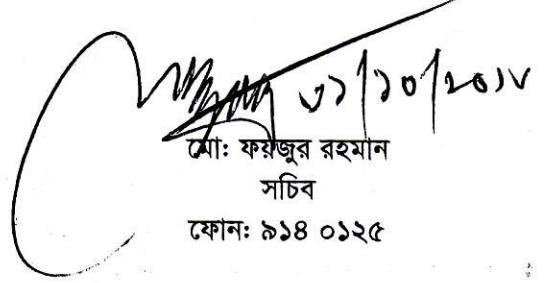 ৩১/১০/২০১৮
মো: ফয়জুর রহমান
সচিব
ফোন: ৯১৪ ০১২৫